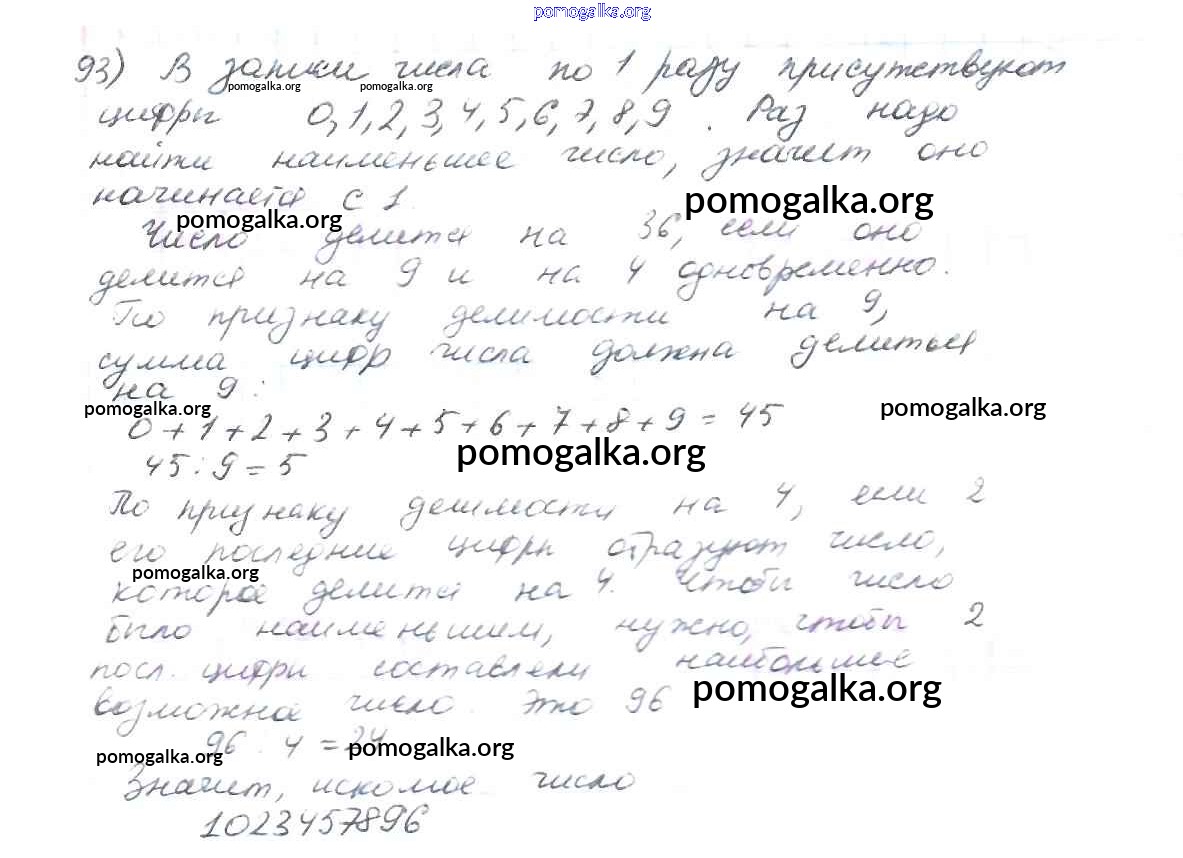 pomogalka.org
93) В записи числа по 1 разу присутствуют
pomogalka.org pomogalka.org
цифры 0,1,2,3,4,5,6,7,8,9. Раз надо
найти наименьшее число, значит оно
начинается с 1.
pomogalka.org
pomogalka.org
Число делится на 36, если оно
делится на 9 и на 4 одновременно.
По признаку делимости на 9,
сумма цифр числа должна делиться
на 9:
pomogalka.org pomogalka.org
0+1+2+3+4+5+6+7+8+9=45
pomogalka.org
45:9=5
По признаку делимости на 4, если 2
его последние цифры образуют число,
pomogalka.org
которое делится на 4. Чтобы число
было наименьшим, нужно, чтобы 2
посл. цифры составляли наибольшее
pomogalka.org
возможное число. Это 96
96:4=24
pomogalka.org pomogalka.org
Значит, искомое число
1023457896